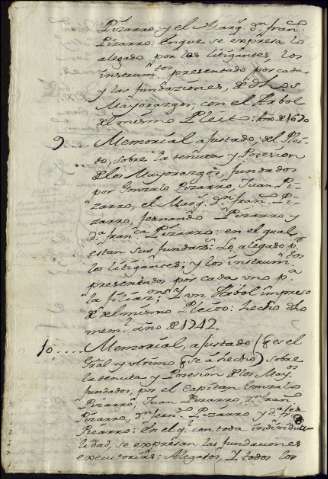 Pizarro, y el Marq.s d.n Fran.co
Pizarro. Enque se expresa lo
alegado por los litigantes, los
instrum.tos presentados por cada
y las fundaciones, de dhos
Mayorazgos, con el Arbol
del mismo Pleit. Año de 1670
9.... Memorial ajustado, del Plei-
to, sobre la tenuta y Posesion
de los Mayorazgos, fundados
por Gonzalo Pizarro, Juan Pi-
zarro, el Marq. d.n Fran.co Pi-
zarro, fernando Pizarro y
d.a fran.ca Pizarro: en el qual
estan sus fundaz.s Lo alegado p.r
los litigantes; y los instrum.tos
presentados por cada uno p.a
un Arbol impreso
del mismo Pleito: hecho dho
mem.l año de 1712.
10.... Memorial, ajustado (
hecho) sobre
la tenuta y Posesion de los May.os
fundados, por el Capitan Gonzalo
Pizarro, Juan Pizarro, D.n Fran.co
Pizarro, d.n Juan Pizarro y d.a fca
Pizarro: En el q.e con toda individua
lidad, se expresan las fundaciones
executorias, Alegatos, I todos los